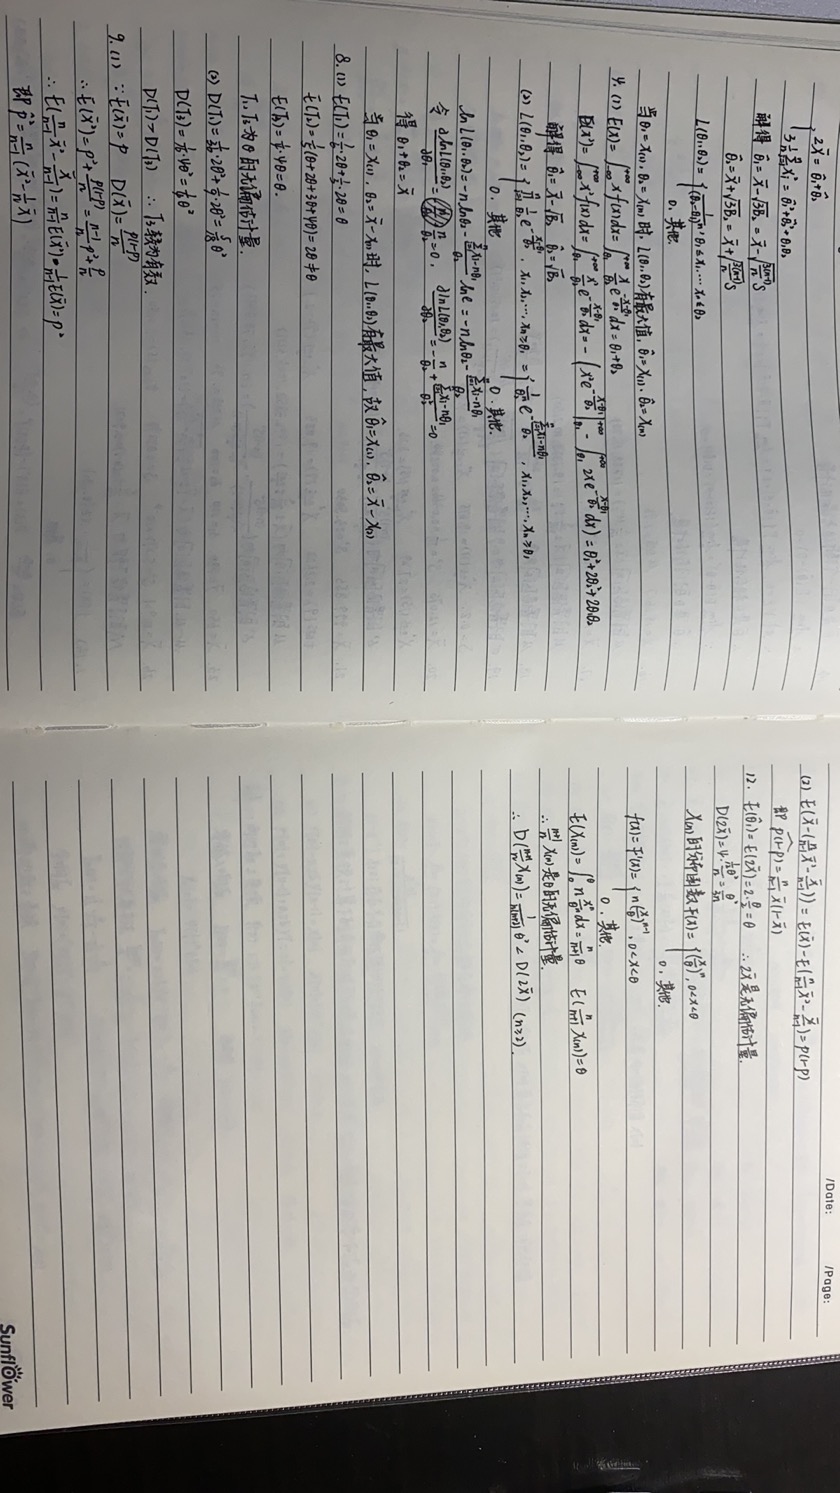 2x̄ = θ̂₁+θ̂₂
3·1/n Σxᵢ² = θ̂₁²+θ̂₂²+θ̂₁θ̂₂
解得 θ̂₁ = x̄ - √3B₂ = x̄ - √(3(n-1)/n) S
θ̂₂ = x̄ + √3B₂ = x̄ + √(3(n-1)/n) S
L(θ₁,θ₂) = { 1/(θ₂-θ₁)ⁿ, θ₁≤x₁,…,xₙ≤θ₂
0, 其他.
当θ₁=x₍₁₎, θ₂=x₍ₙ₎时, L(θ₁,θ₂)有最大值, θ̂₁=x₍₁₎, θ̂₂=x₍ₙ₎
4. (1) E(x)=∫₋∞^+∞ x f(x)dx = ∫_θ₁^+∞ x/θ₂ e^(-(x-θ₁)/θ₂) dx = θ₁+θ₂
E(x²)=∫₋∞^+∞ x²f(x)dx = ∫_θ₁^+∞ x²/θ₂ e^(-(x-θ₁)/θ₂) dx = -(x²e^(-(x-θ₁)/θ₂)|_θ₁^+∞ - ∫_θ₁^+∞ 2xe^(-(x-θ₁)/θ₂) dx) = θ₁²+2θ₂²+2θ₁θ₂
解得 θ̂₁=x̄-√B₂ θ̂₂=√B₂
(2) L(θ₁,θ₂)={ ∏ 1/θ₂ e^(-(xᵢ-θ₁)/θ₂), x₁,x₂,…,xₙ≥θ₁ = { 1/θ₂ⁿ e^(-(Σxᵢ-nθ₁)/θ₂), x₁,x₂,…,xₙ≥θ₁
0, 其他 0, 其他.
lnL(θ₁,θ₂)=-nlnθ₂-(Σxᵢ-nθ₁)/θ₂ lne=-nlnθ₂-(Σxᵢ-nθ₁)/θ₂
令 ∂lnL(θ₁,θ₂)/∂θ₁ = n/θ₂=0, ∂lnL(θ₁,θ₂)/∂θ₂ = -n/θ₂+(Σxᵢ-nθ₁)/θ₂²=0
得 θ₁+θ₂=x̄
当θ₁=x₍₁₎, θ₂=x̄-x₍₁₎时, L(θ₁,θ₂)有最大值, 故θ̂₁=x₍₁₎, θ̂₂=x̄-x₍₁₎
8. (1) E(T₁)=1/6·2θ+1/3·2θ=θ
E(T₂)=1/5(θ+2θ+3θ+4θ)=2θ≠θ
E(T₃)=1/4·4θ=θ.
T₁, T₃为θ的无偏估计量.
(2) D(T₁)=1/36·2θ²+1/9·2θ²=5/18θ²
D(T₃)=1/16·4θ²=1/4θ²
D(T₁)>D(T₃) ∴ T₃较为有效.
9. (1) ∵ E(x̄)=p D(x̄)=p(1-p)/n
∴ E(x̄²)=p²+p(1-p)/n=(n-1)/n p²+p/n
∴ E(n/(n-1) x̄²-x̄/(n-1))=n/(n-1) E(x̄²)-1/(n-1) E(x̄)=p²
即 p̂²=n/(n-1)(x̄²-1/n x̄)
(2) E(x̄-(n/(n-1) x̄²-x̄/(n-1)))=E(x̄)-E(n/(n-1) x̄²-x̄/(n-1))=p(1-p)
即 p(1-p)^=n/(n-1) x̄(1-x̄)
12. E(θ̂₁)=E(2x̄)=2·θ/2=θ ∴ 2x̄是无偏估计量.
D(2x̄)=4·(1/12 θ²)/n=θ²/3n
X₍ₙ₎的分布函数F(x)={ (x/θ)ⁿ, 0<x<θ
0, 其他.
f(x)=F'(x)={ n(x/θ)ⁿ⁻¹, 0<x<θ
0, 其他.
E(X₍ₙ₎)=∫₀^θ n xⁿ/θⁿ dx=n/(n+1) θ E(n/(n+1) X₍ₙ₎)=θ
∴ (n+1)/n X₍ₙ₎是θ的无偏估计量.
∴ D((n+1)/n X₍ₙ₎)=1/(n(n+2)) θ²<D(2x̄) (n≥2).
/Date: /Page:
Sunflower